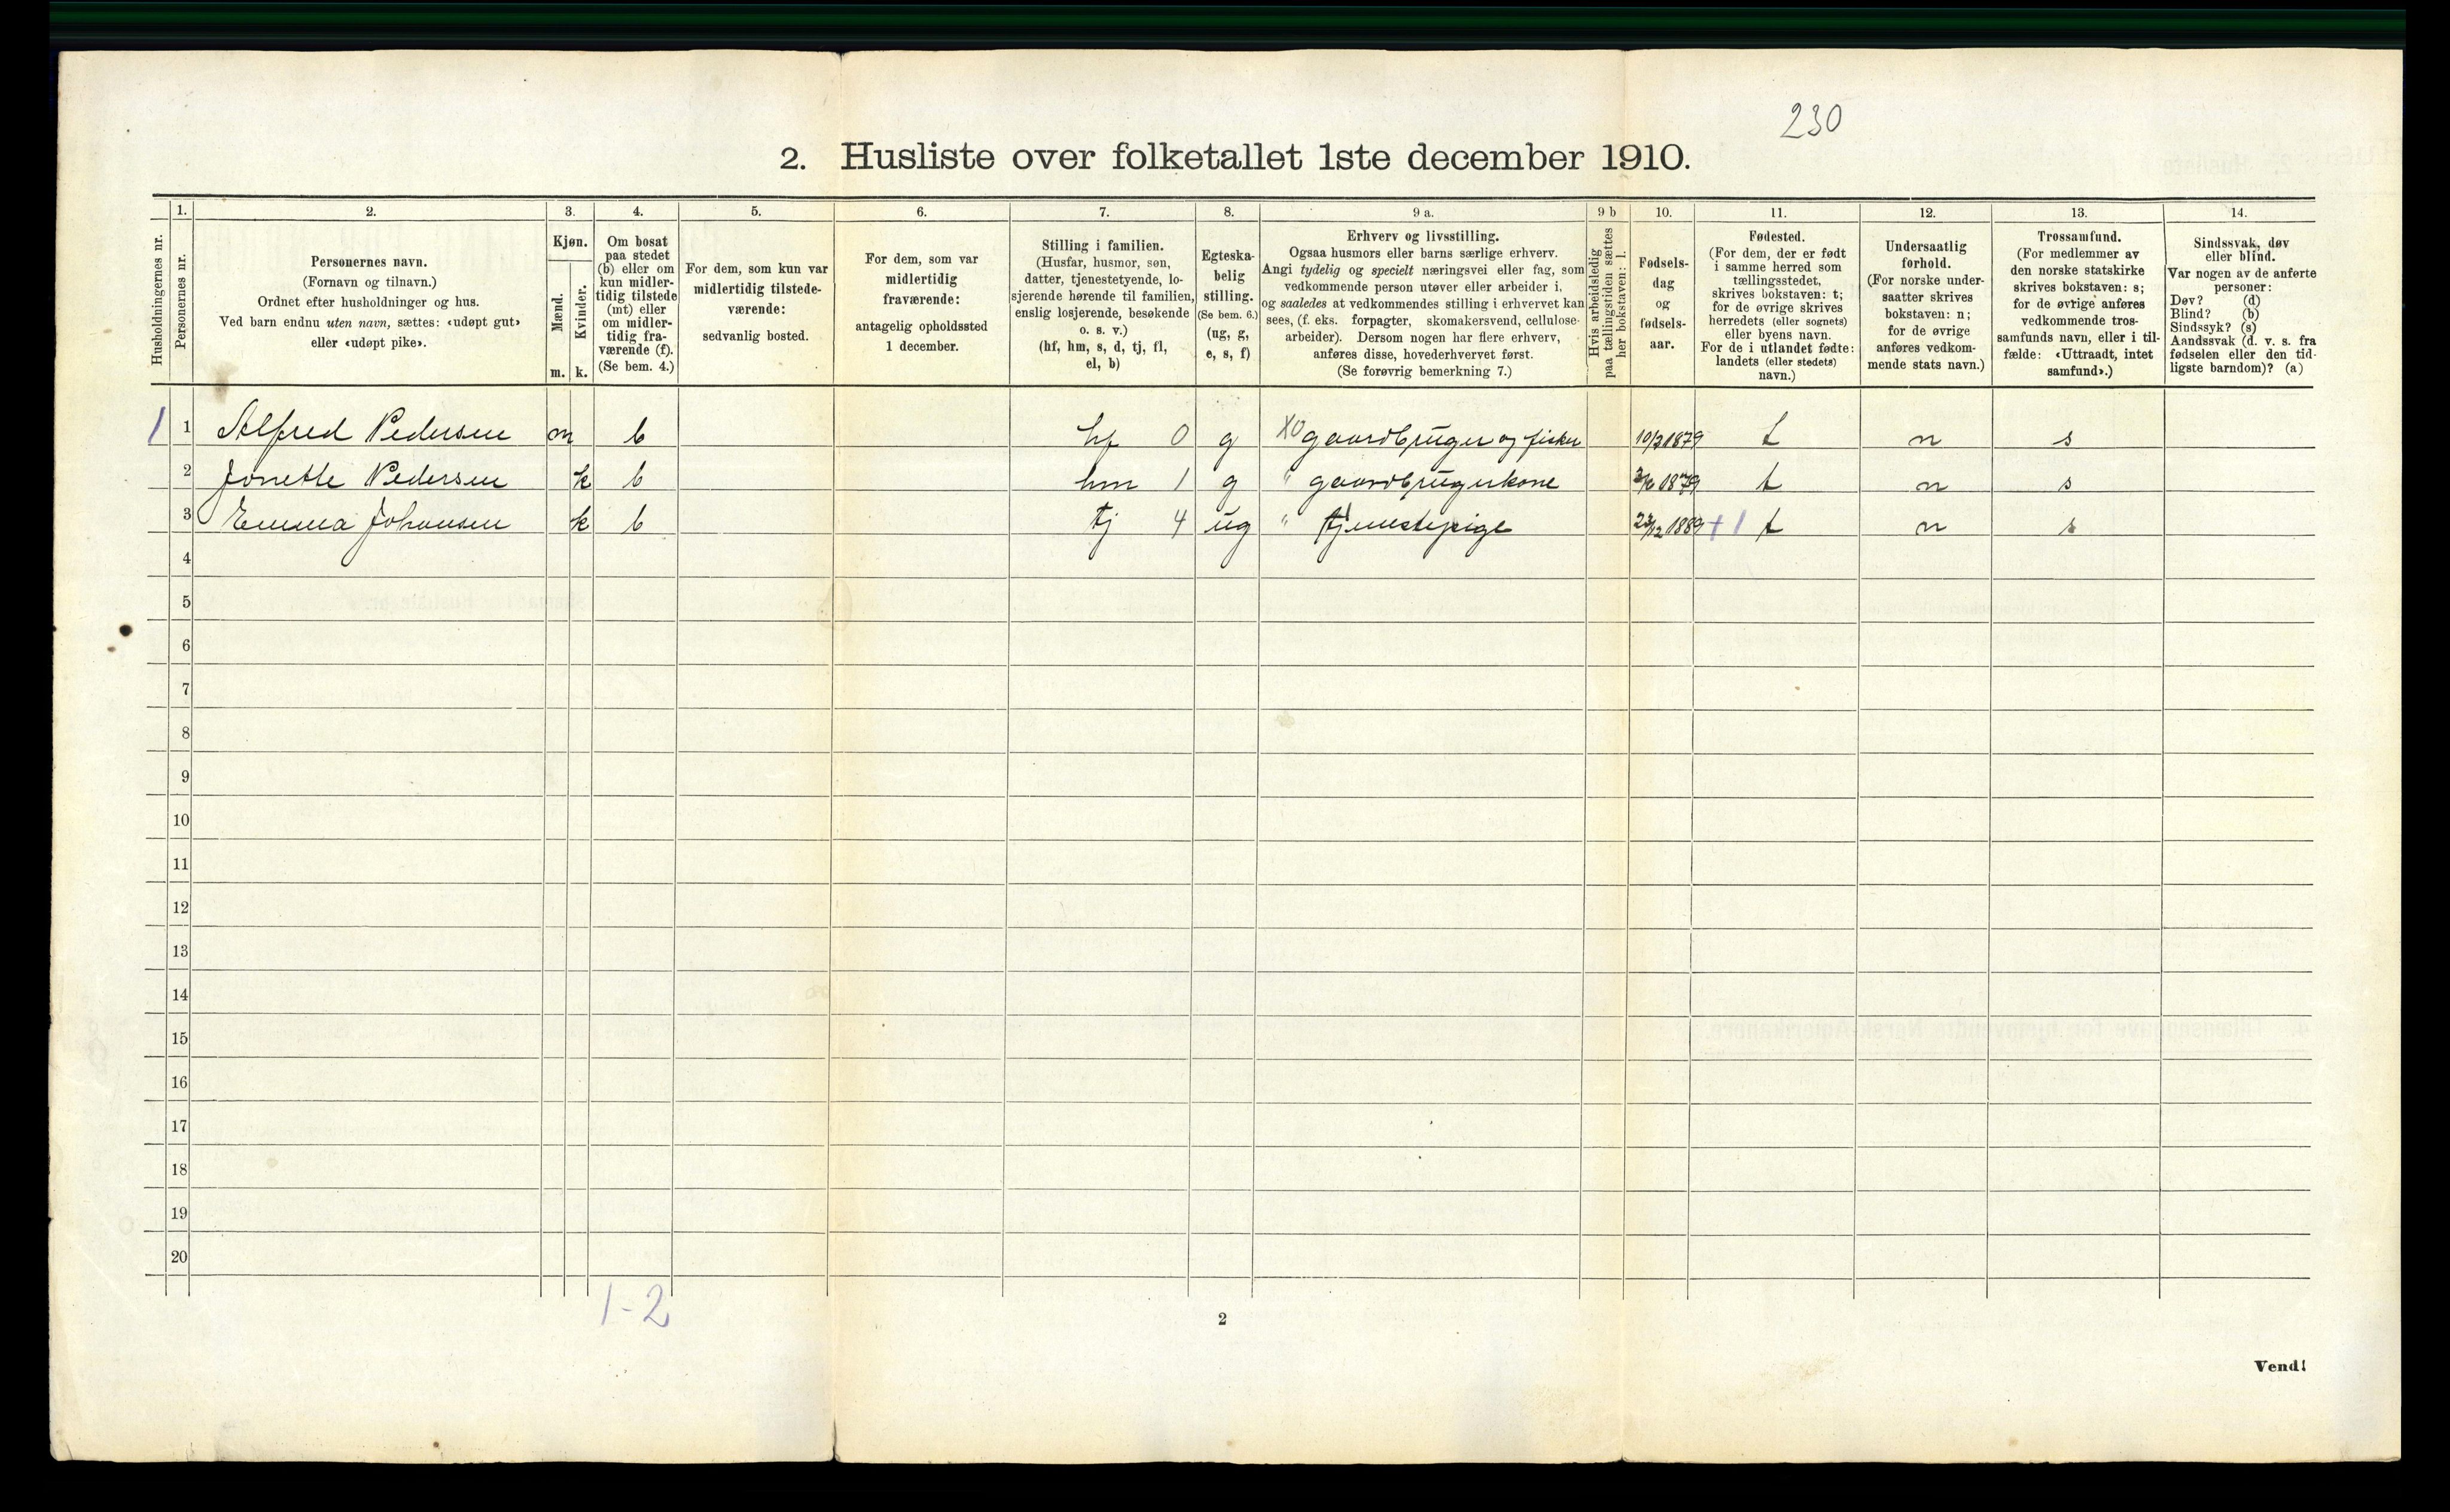 230
2. Husliste over folketallet 1ste december 1910.
Husholdningernes nr.
1.
Personernes nr.
2.
Personernes navn.
(Fornavn og tilnavn.)
Ordnet efter husholdninger og hus.
Ved barn endnu uten navn, sættes: «udøpt gut»
eller «udøpt pike».
3.
Kjøn.
Mænd.
Kvinder.
m. k.
4.
Om bosat
paa stedet
(b) eller om
kun midler-
tidig tilstede
(mt) eller
om midler-
tidig fra-
værende (f).
(Se bem. 4.)
5.
For dem, som kun var
midlertidig tilstede-
værende:
sedvanlig bosted.
6.
For dem, som var
midlertidig
fraværende:
antagelig opholdssted
1 december.
7.
Stilling i familien.
(Husfar, husmor, søn,
datter, tjenestetyende, lo-
sjerende hørende til familien,
enslig losjerende, besøkende
o. s. v.)
(hf, hm, s, d, tj, fl,
el, b)
8.
Egteska-
belig
stilling.
(Se bem. 6.)
(ug, g,
e, s, f)
9 a.
Erhverv og livsstilling.
Ogsaa husmors eller barns særlige erhverv.
Angi tydelig og specielt næringsvei eller fag, som
vedkommende person utøver eller arbeider i,
og saaledes at vedkommendes stilling i erhvervet kan
sees, (f. eks. forpagter, skomakersvend, cellulose-
arbeider). Dersom nogen har flere erhverv,
anføres disse, hovederhvervet først.
(Se forøvrig bemerkning 7.)
9 b
Hvis arbeidsledig
paa tællingstiden sættes
her bokstaven: l.
10.
Fødsels-
dag
og
fødsels-
aar.
11.
Fødested.
(For dem, der er født
i samme herred som
tællingsstedet,
skrives bokstaven: t;
for de øvrige skrives
herredets (eller sognets)
eller byens navn.
For de i utlandet fødte:
landets (eller stedets)
navn.)
12.
Undersaatlig
forhold.
(For norske under-
saatter skrives
bokstaven: n;
for de øvrige
anføres vedkom-
mende stats navn.)
13.
Trossamfund.
(For medlemmer av
den norske statskirke
skrives bokstaven: s;
for de øvrige anføres
vedkommende tros-
samfunds navn, eller i til-
fælde: «Uttraadt, intet
samfund».)
14.
Sindssvak, døv
eller blind.
Var nogen av de anførte
personer:
Døv? (d)
Blind? (b)
Sindssyk? (s)
Aandssvak (d. v. s. fra
fødselen eller den tid-
ligste barndom)? (a)
1 1 Alfred Pedersen m b hf 0 g X0 gaardbruger og fisker 10/2 1879 t n s
2 Jonette Pedersen k b hm 1 g " gaardbrugerkone 1879 t n s
3 Emma Johansen k b tj 4 ug " tjenestepige 23/12 1889 +1 t n s
4
5
6
7
8
9
10
11
12
13
14
15
16
17
18
19
20
1-2
2
Vend!